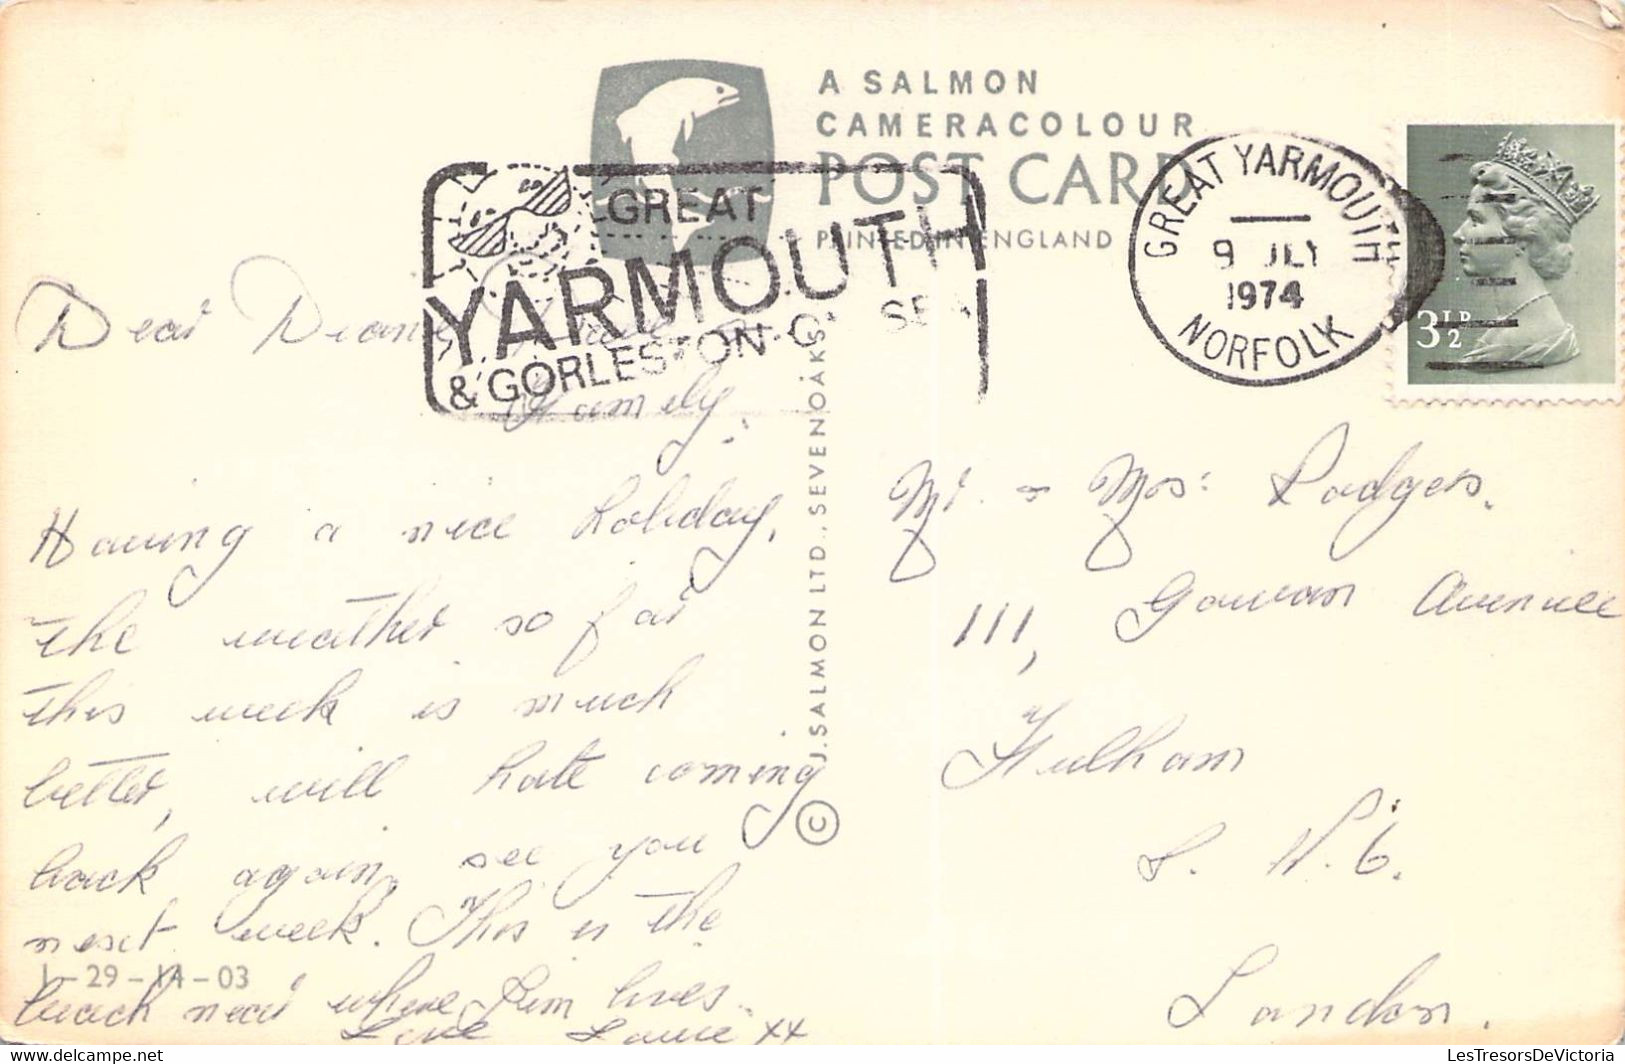 A SALMON
CAMERACOLOUR
POST CARD
PRINTED IN ENGLAND
GREAT
YARMOUTH
& GORLESTON
GREAT YARMOUTH
9 JLY
1974
NORFOLK
3½P
Dear Diane,
Family.
Having a nice holiday,
the weather so far
this week is much
better, will hate coming
back again, see you
next week. This is the
beach near where Jim lives.
Love Laurie xx
1-29-14-03
J. SALMON LTD., SEVENOAKS
©
Mr. & Mrs: Rodgers.
111, Gowan Avenuee
Fulham
S. W. 6.
London.
LesTresorsDeVictoria.com
LesTresorsDeVictoria